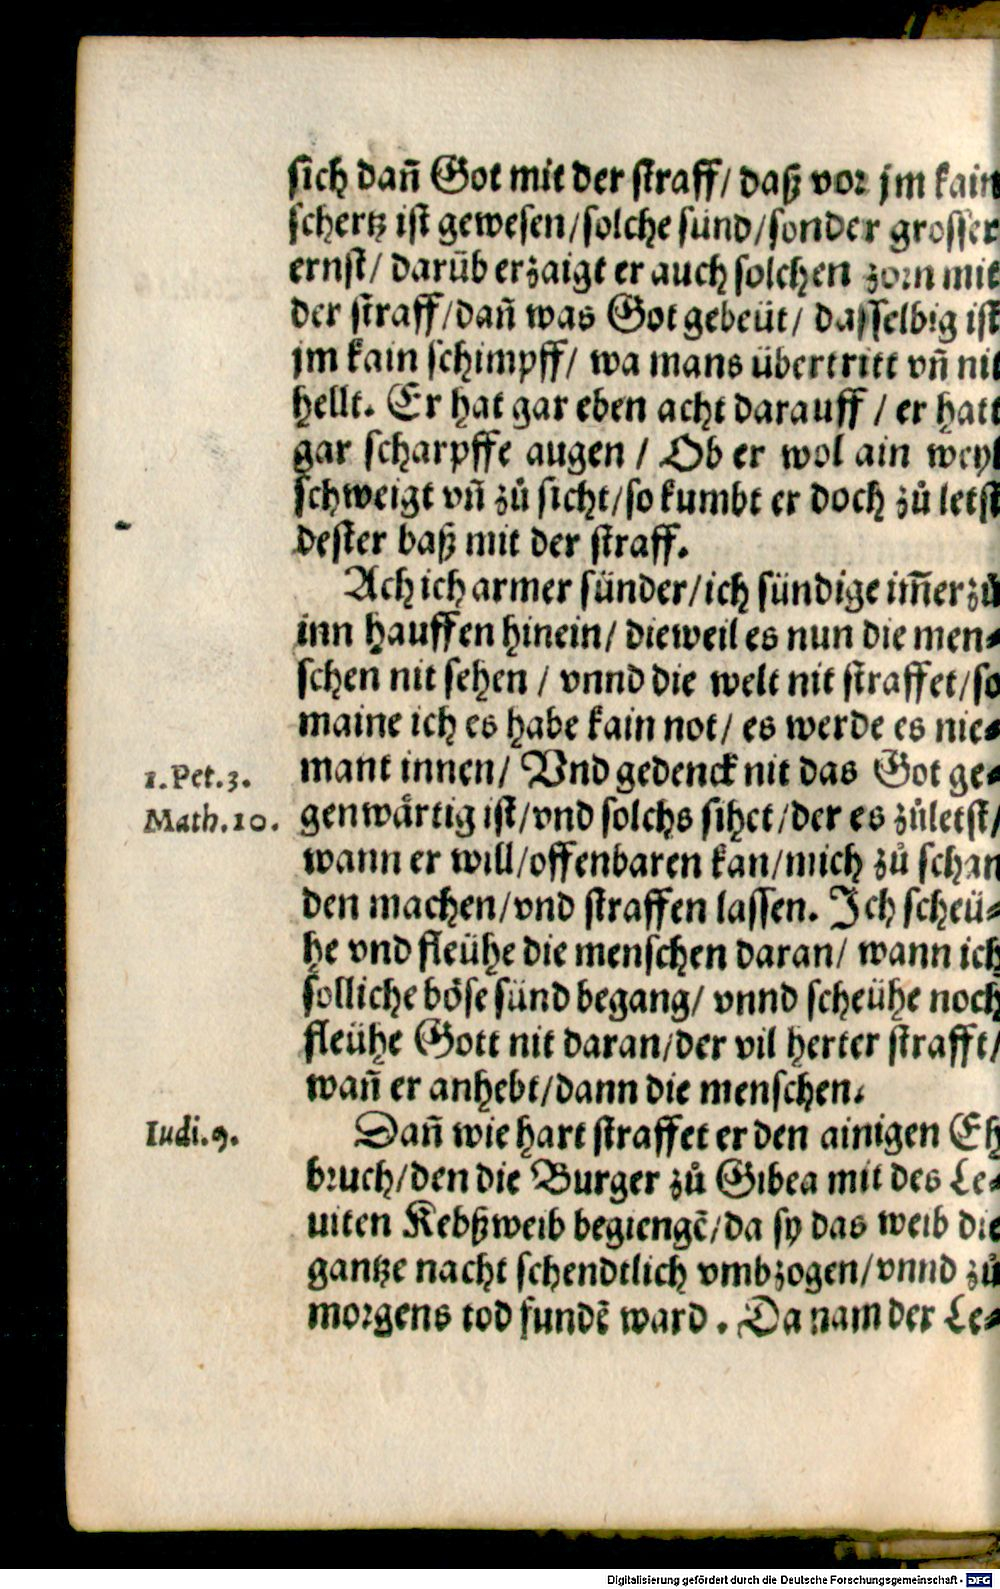 sich dañ Got mit der straff/ daß vor jm kain
schertz ist gewesen/solche sünd/sonder grosser
ernst/ darüb erzaigt er auch solchen zorn mit
der straff/dañ was Got gebeüt/ dasselbig ist
jm kain schimpff/ wa mans übertritt vñ nit
hellt. Er hat gar eben acht darauff / er hatt
gar scharpffe augen / Ob er wol ain weyl
schweigt vñ zů sicht/so kumbt er doch zů letst
dester baß mit der straff.
Ach ich armer sünder/ich sündige im̃er zů
inn hauffen hinein/ dieweil es nun die men⸗
schen nit sehen / vnnd die welt nit straffet/so
maine ich es habe kain not/ es werde es nie⸗
1. Pet. 3. mant innen/ Vnd gedenck nit das Got ge⸗
Math. 10. genwärtig ist/vnd solchs sihet/der es zůletst/
wann er will/offenbaren kan/mich zů schan
den machen/vnd straffen lassen. Ich scheü⸗
he vnd fleühe die menschen daran/ wann ich
solliche böse sünd begang/ vnnd scheühe noch
fleühe Gott nit daran/der vil herter strafft/
wañ er anhebt/dann die menschen.
Iudi. 9. Dañ wie hart straffet er den ainigen Eh
bruch/den die Burger zů Gibea mit des Le⸗
uiten Kebßweib begiengẽ/da sy das weib die
gantze nacht schendtlich vmbzogen/vnnd zů
morgens tod fundẽ ward . Da nam der Le⸗
Digitalisierung gefördert durch die Deutsche Forschungsgemeinschaft - DFG